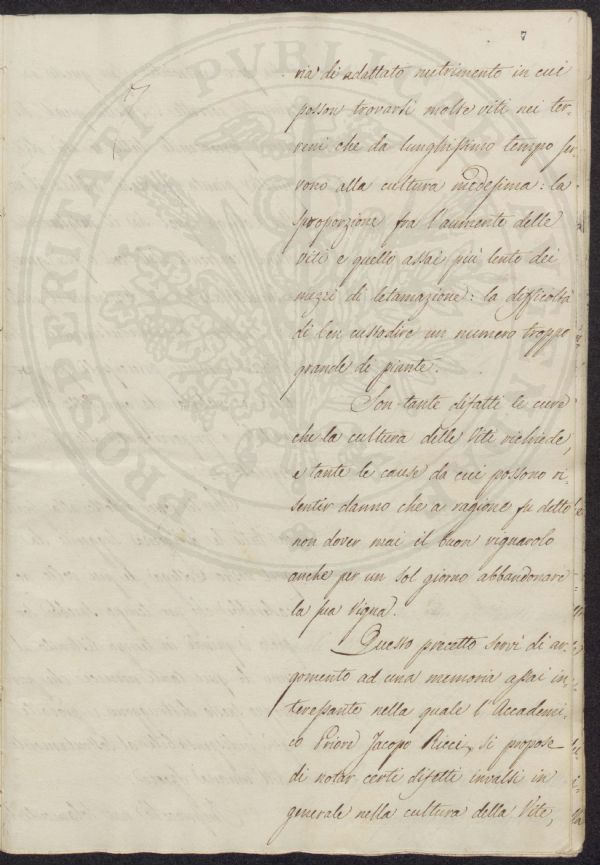 7
PROSPERITATI PVBLICAE
ria di adattato nutrimento in cui
posson trovarsi molte viti nei ter-
reni che da lunghissimo tempo ser-
vono alla cultura medesima: la
sproporzione fra l'aumento delle
viti e quello assai più lento dei
mezzi di letamazione: la difficoltà
di ben custodire un numero troppo
grande di piante.
Son tante difatti le cure
che la cultura delle Viti richiede,
e tante le cause da cui possono ri-
sentir danno che a ragione fu detto
non dover mai il buon vignarolo
anche per un sol giorno abbandonare
la sua Vigna.
Questo precetto servì di ar-
gomento ad una memoria assai in-
teressante nella quale l'Accademi-
co Priore Jacopo Ricci, si propose
di notar certi difetti invalsi in
generale nella cultura della Vite,